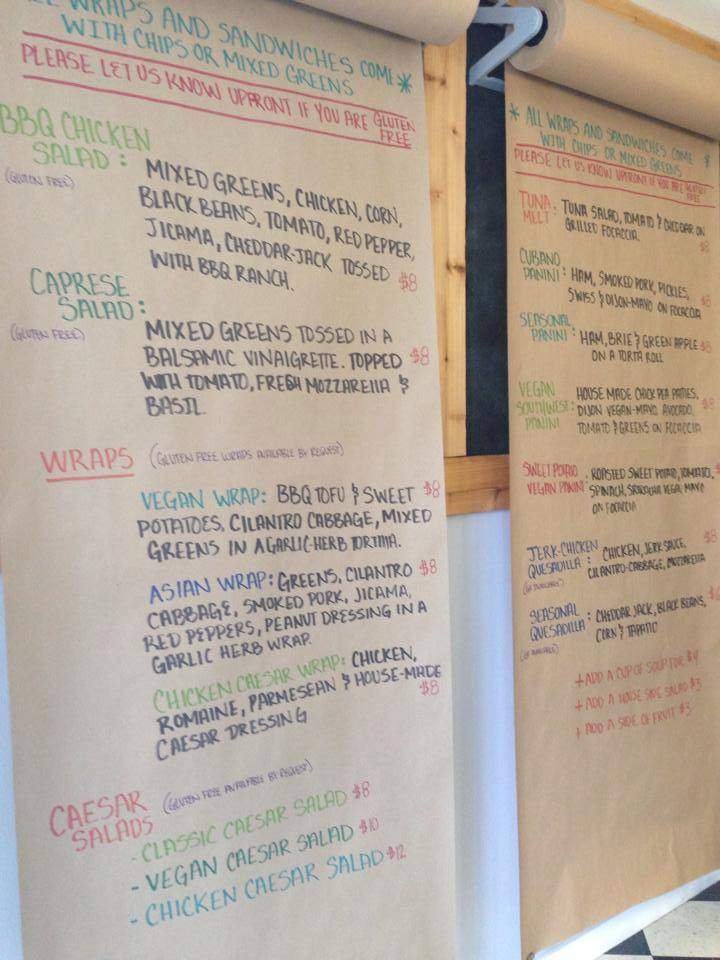 ALL WRAPS AND SANDWICHES COME *
WITH CHIPS OR MIXED GREENS
PLEASE LET US KNOW UPFRONT IF YOU ARE GLUTEN
FREE
BBQ CHICKEN
SALAD:
(GLUTEN FREE)
MIXED GREENS, CHICKEN, CORN,
BLACK BEANS, TOMATO, RED PEPPER,
JICAMA, CHEDDAR-JACK TOSSED
WITH BBQ RANCH. $8
CAPRESE
SALAD:
(GLUTEN FREE)
MIXED GREENS TOSSED IN A
BALSAMIC VINAIGRETTE. TOPPED $8
WITH TOMATO, FRESH MOZZARELLA &
BASIL.
WRAPS (GLUTEN FREE WRAPS AVAILABLE BY REQUEST)
VEGAN WRAP: BBQ TOFU & SWEET $8
POTATOES, CILANTRO CABBAGE, MIXED
GREENS IN A GARLIC-HERB TORTILLA.
ASIAN WRAP: GREENS, CILANTRO $8
CABBAGE, SMOKED PORK, JICAMA,
RED PEPPERS, PEANUT DRESSING IN A
GARLIC HERB WRAP.
CHICKEN CAESAR WRAP: CHICKEN,
ROMAINE, PARMESEAN & HOUSE-MADE
CAESAR DRESSING $8
CAESAR
SALADS
(GLUTEN FREE AVAILABLE BY REQUEST)
- CLASSIC CAESAR SALAD $8
- VEGAN CAESAR SALAD $10
- CHICKEN CAESAR SALAD $12
* ALL WRAPS AND SANDWICHES COME *
WITH CHIPS OR MIXED GREENS
PLEASE LET US KNOW UPFRONT IF YOU ARE GLUTEN
FREE
TUNA
MELT:
TUNA SALAD, TOMATO & CHEDDAR ON
GRILLED FOCACCIA. $8
CUBANO
PANINI:
HAM, SMOKED PORK, PICKLES,
SWISS & DIJON-MAYO ON FOCACCIA $8
SEASONAL
PANINI:
HAM, BRIE & GREEN APPLE $8
ON A TORTA ROLL
VEGAN
SOUTHWEST
PANINI:
HOUSE MADE CHICK PEA PATTIES,
DIJON VEGAN-MAYO, AVOCADO, $8
TOMATO & GREENS ON FOCACCIA
SWEET POTATO
VEGAN PANINI:
ROASTED SWEET POTATO, TOMATO,
SPINACH, SRIRACHA VEGA. MAYO
ON FOCACCIA
JERK-CHICKEN
QUESADILLA:
(GF AVAILABLE)
CHICKEN, JERK SAUCE, $8
CILANTRO-CABBAGE, MOZZARELLA
SEASONAL
QUESADILLA:
(GF AVAILABLE)
CHEDDAR JACK, BLACK BEANS,
CORN & TAPATIO
+ ADD A CUP OF SOUP FOR $4
+ ADD A HOUSE SIDE SALAD $3
+ ADD A SIDE OF FRUIT $3